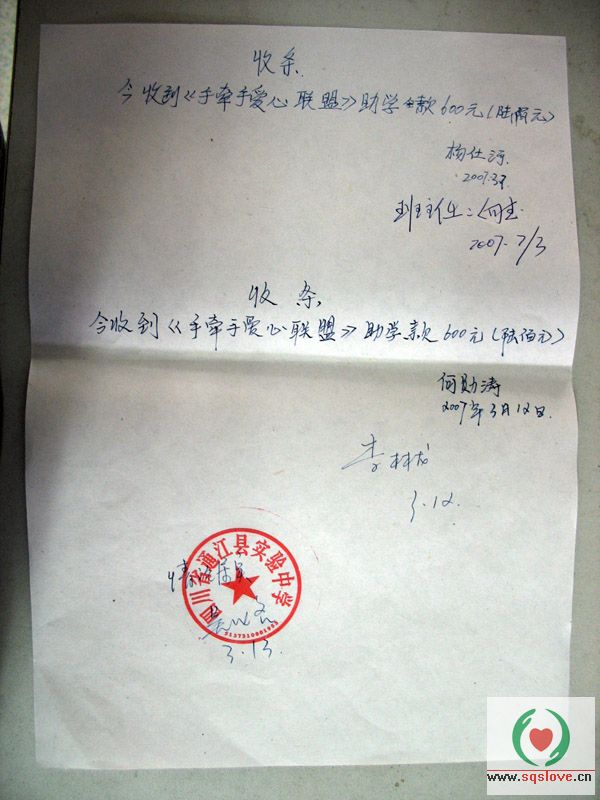 收条
今收到《手牵手爱心联盟》助学金款600元(陆佰元)
杨仕海
2007.3.7
班主任:何
2007.7/3
收条
今收到《手牵手爱心联盟》助学款600元(陆佰元)
何勋涛
2007年3月12日
李林成
3.12.
四川省通江县实验中学
情况属实
3.13
www.sqslove.cn